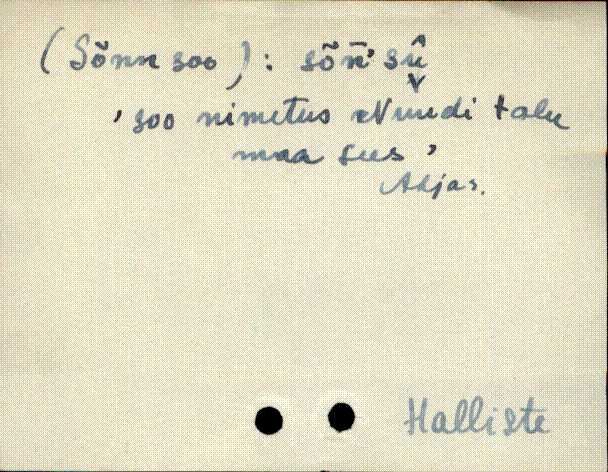 (Sõnn soo): sõn̄' sû
' soo nimetus Nuudi talu
maa sees '
Abjas.
Halliste